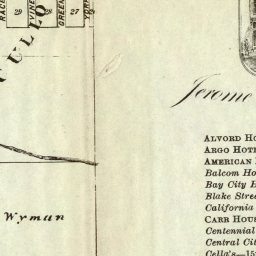 RACE
VINE
GREEN
YORK
29
28
27
ULLO
Jerome
Wyman
ALVORD HO
ARGO HOTE
AMERICAN
Balcom Ho
Bay City
Blake Stree
California
CARR HOUS
Centennial
Central Cit
Cella's—15